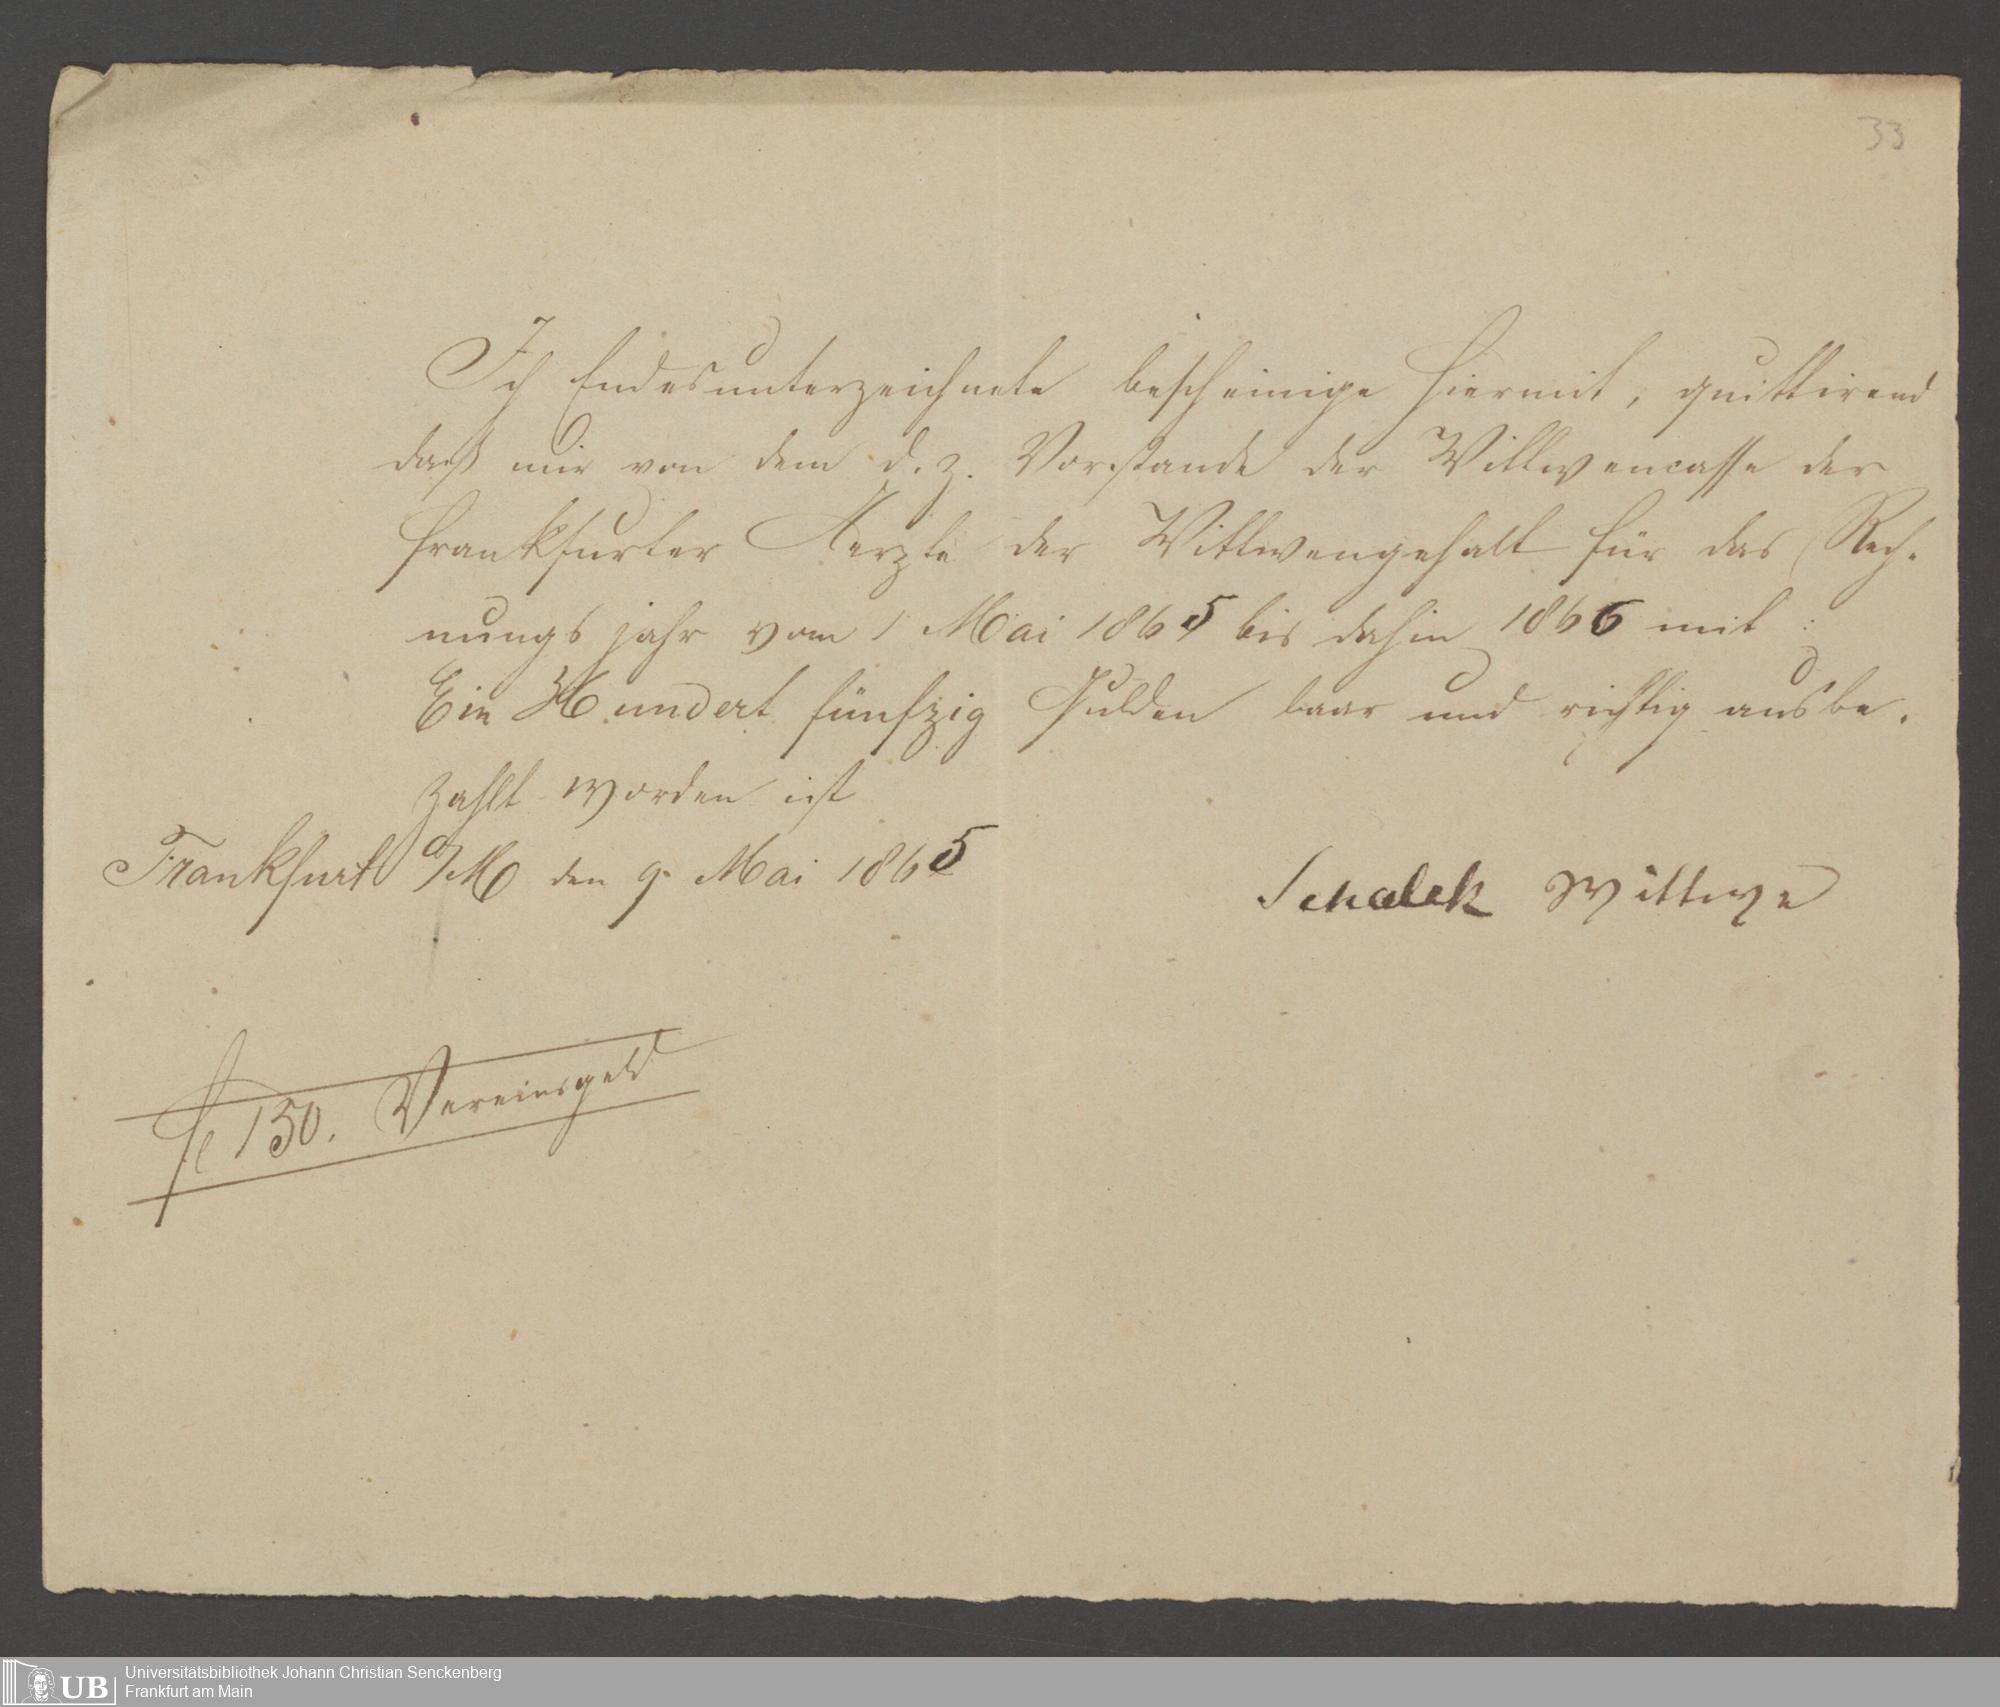 33
Ich Endesunterzeichnete bescheinige hiermit, quittirend
daß mir von dem d. z. Vorstande der Wittwencasse der
Frankfurter Aerzte der Wittwengehalt für das Rech-
nungsjahr vom 1 Mai 1865 bis dahin 1866 mit :
Ein Hundert fünfzig Gulden baar und richtig ausbe-
zahlt worden ist
Frankfurt a/M den 9. Mai 1865
Schalck Wittwe
fl 150. Vereinsgeld
UB Universitätsbibliothek Johann Christian Senckenberg
Frankfurt am Main